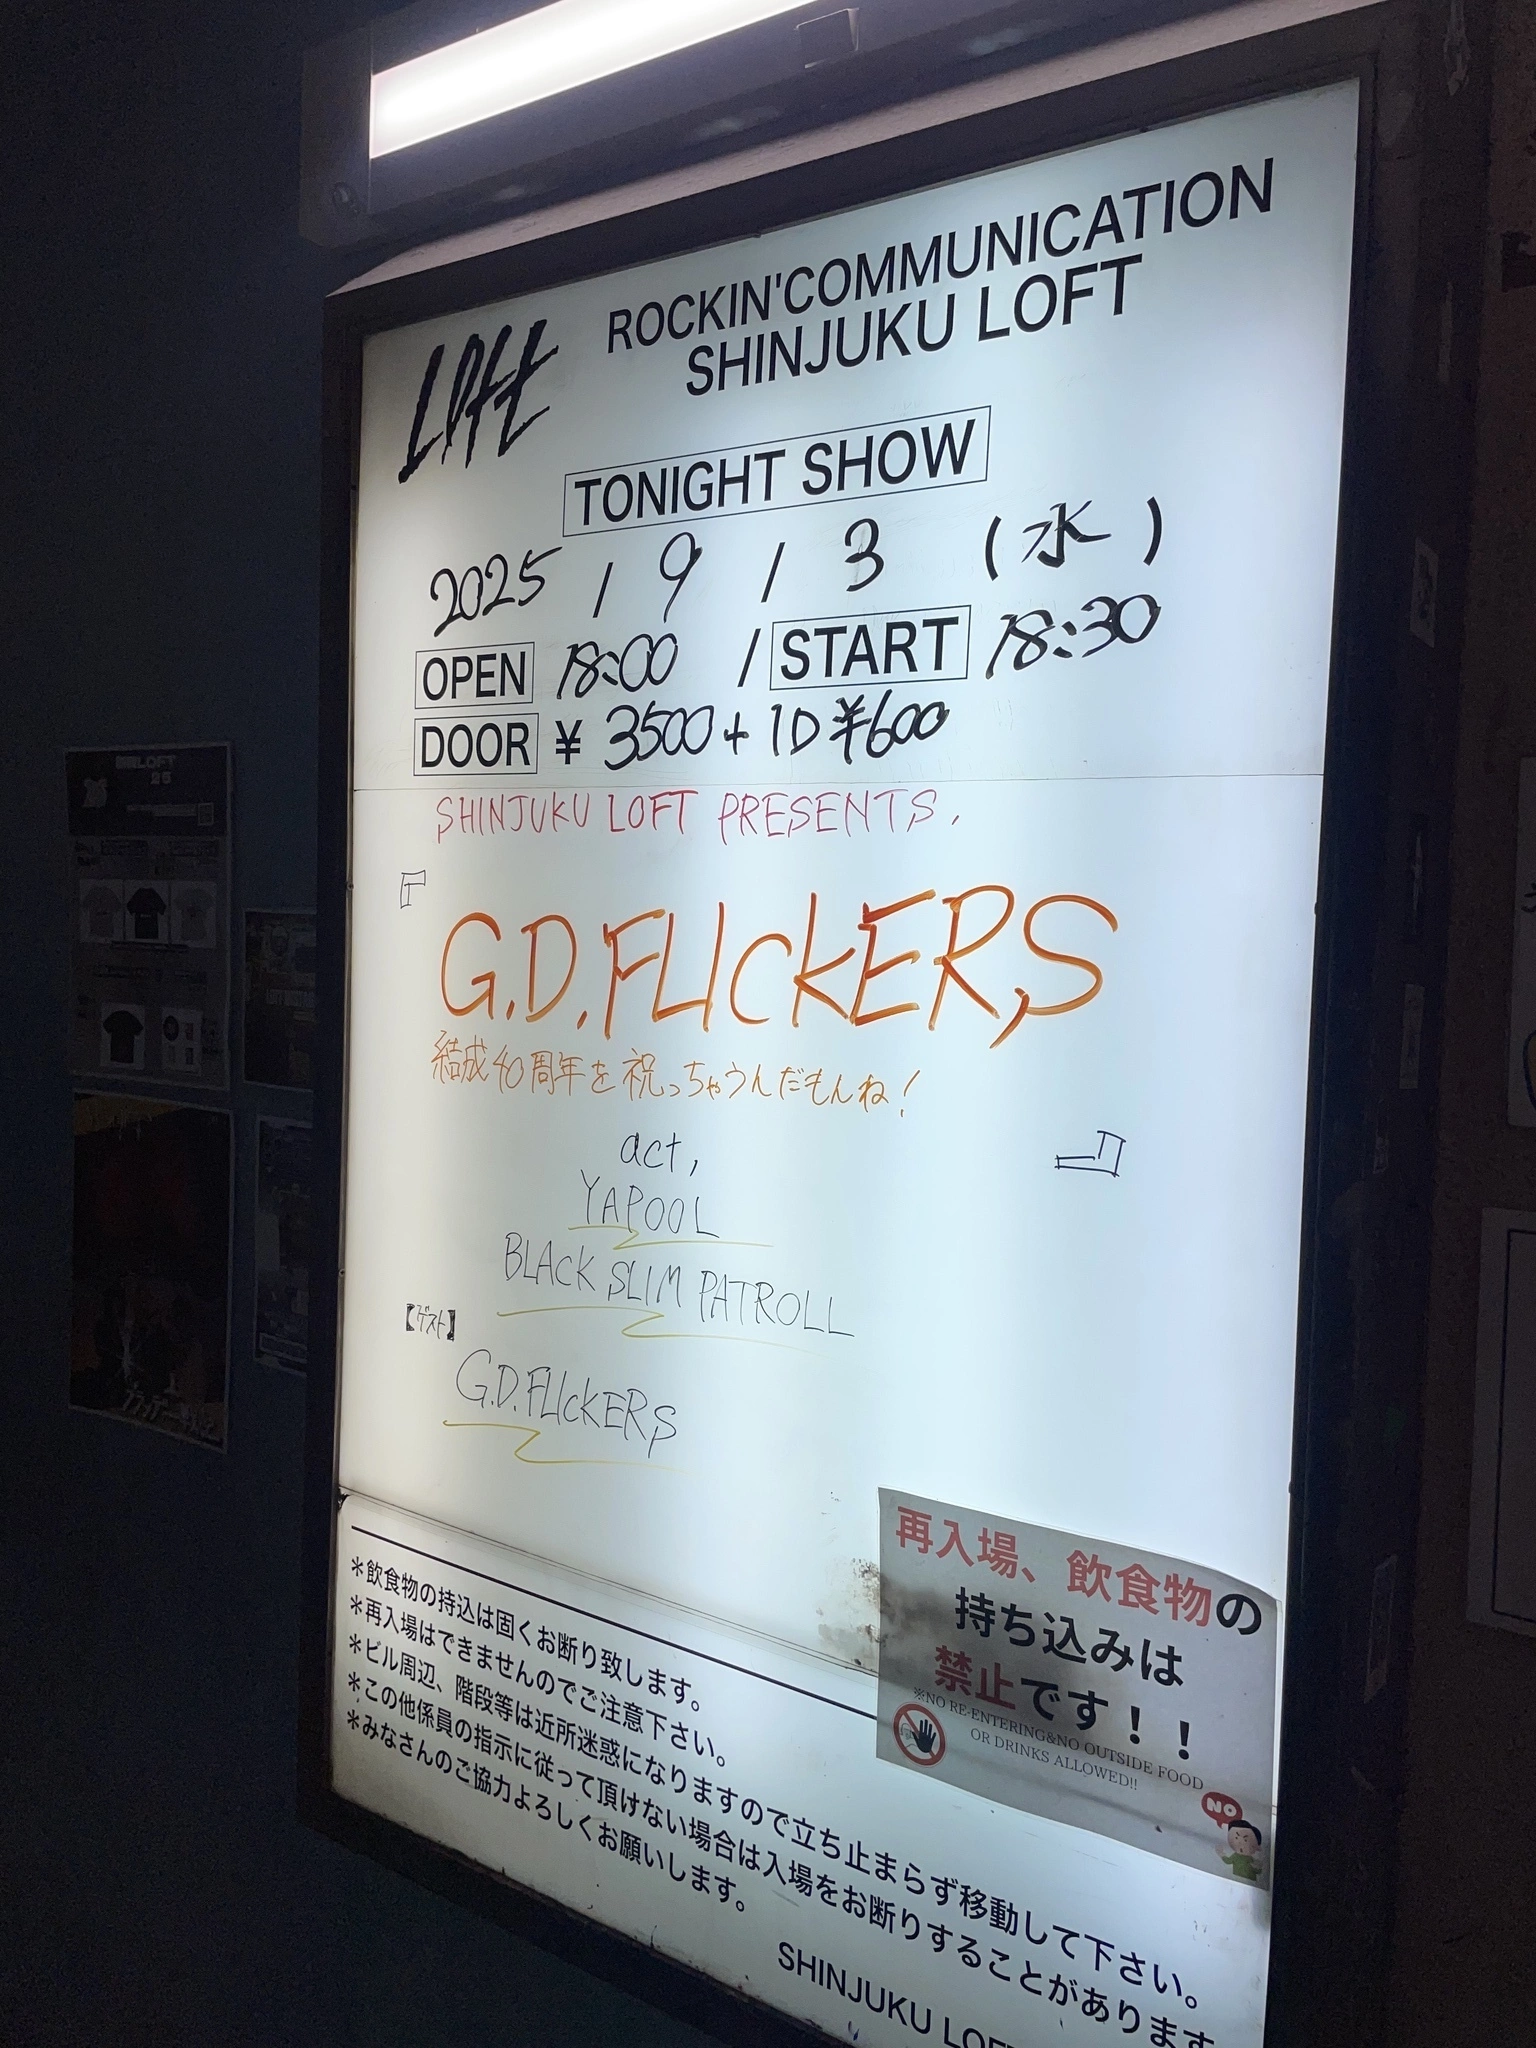 Loft
ROCKIN'COMMUNICATION
SHINJUKU LOFT
TONIGHT SHOW
2025 / 9 / 3 (水)
OPEN 18:00 / START 18:30
DOOR ¥ 3500 + 1D ¥600
SHINJUKU LOFT PRESENTS.
『
G.D.FLICKERS
結成40周年を祝っちゃうんだもんね!
』
act,
YAPOOL
BLACK SLIM PATROLL
【ゲスト】
G.D.FLICKERS
再入場、飲食物の
持ち込みは
禁止です!!
※NO RE-ENTERING&NO OUTSIDE FOOD
OR DRINKS ALLOWED!!
NO
*飲食物の持込は固くお断り致します。
*再入場はできませんのでご注意下さい。
*ビル周辺、階段等は近所迷惑になりますので立ち止まらず移動して下さい。
*この他係員の指示に従って頂けない場合は入場をお断りすることがあります
*みなさんのご協力よろしくお願いします。
SHINJUKU LOFT